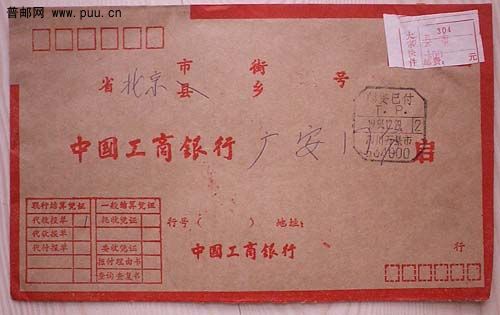 普邮网
www.puu.cn
304
大宗
市 街
省 北京 县 乡 号
元
费已付
T.P.
2
中国工商银行 广安门 启
现行结算凭证 一般结算凭证
代收报单 1 托收凭证
代收报单
代付报单 委收凭证
拒付理由书
查询查复书
行号( ) 地址:
中国工商银行 行